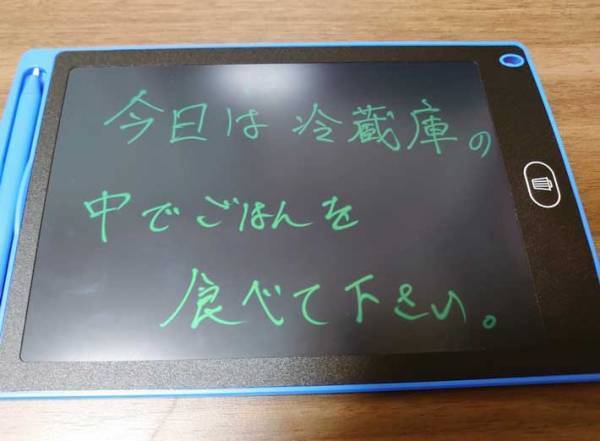 今日は冷蔵庫の
中でごはんを
食べて下さい。